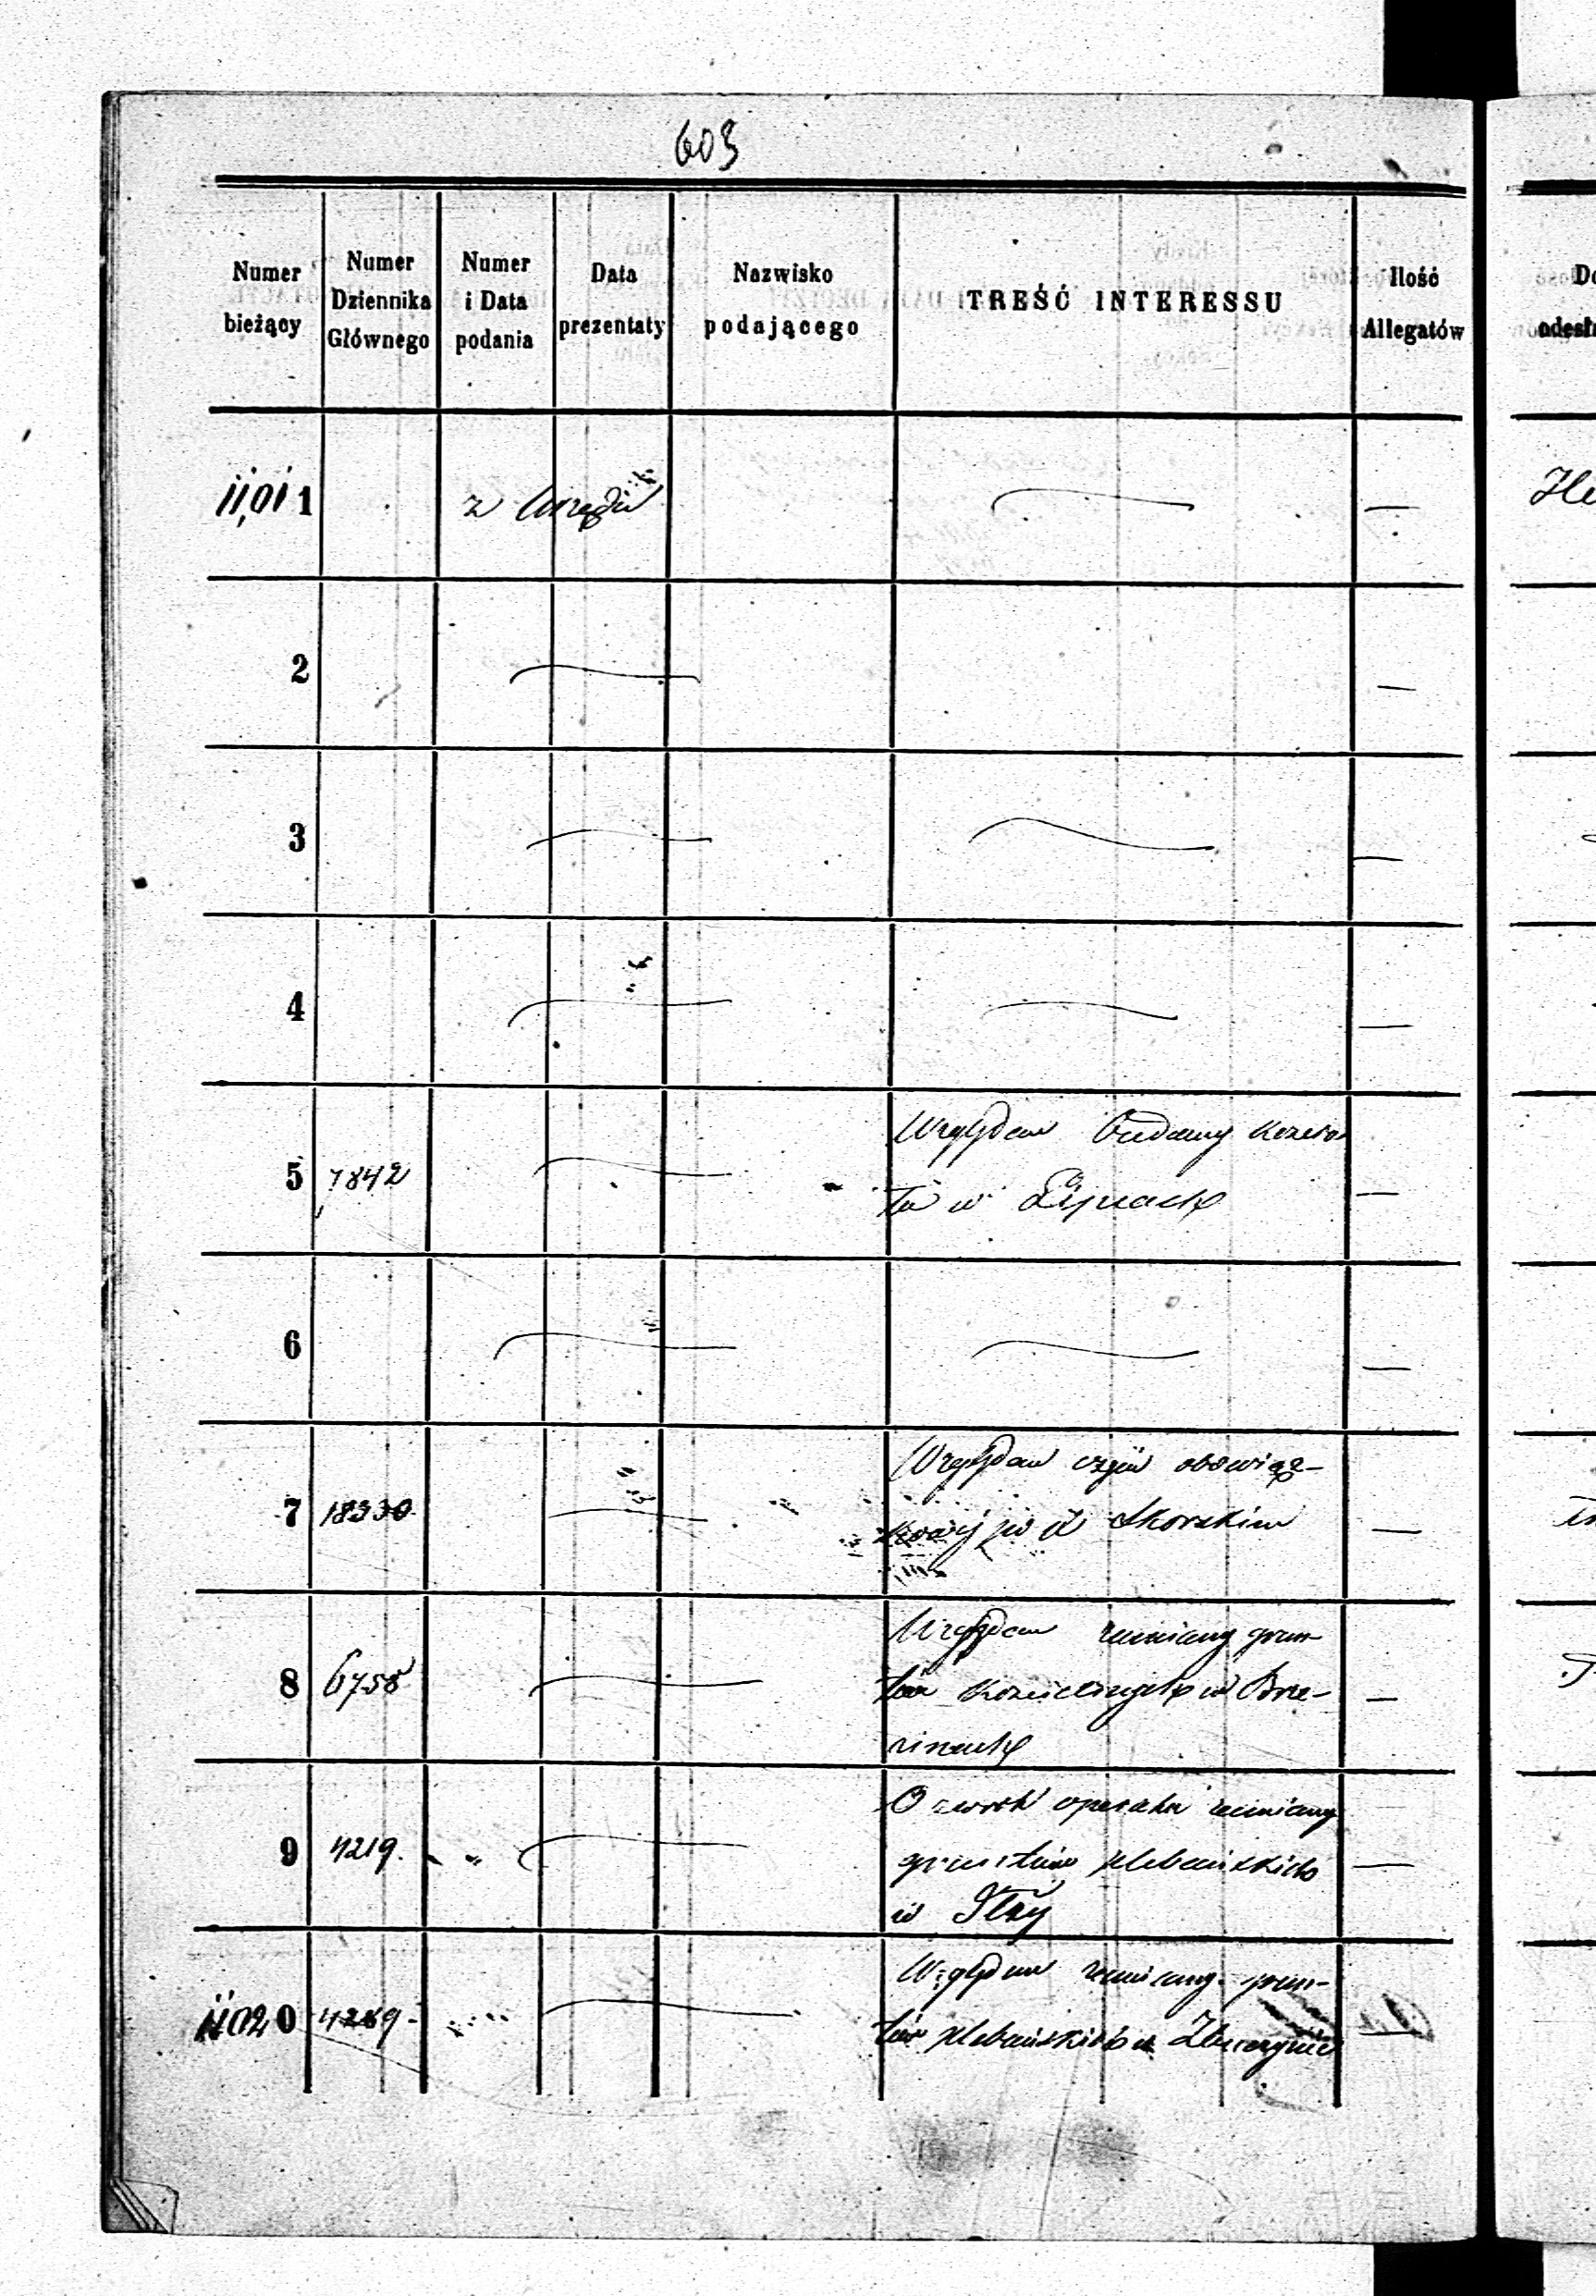 603
Numer bieżący
Numer Dziennika Głównego
Numer i Data podania
Data prezentaty
Nazwisko podającego
TREŚĆ INTERESSU
Ilość Allegatów
11,01 1 z Urzędu
2
3
4
5 7842 Względem budowy
w Lipnach
6
7 18330 Względem obowiąz-
Skorskim
8 6758 Względem zamiany grun-
tów kościelnych w Brze-
zinach
9 4219. O zwrot operatu zamiany
gruntów plebańskich
w Iłży
1102 0 4289. Względem zamiany grun-
tów plebańskich w